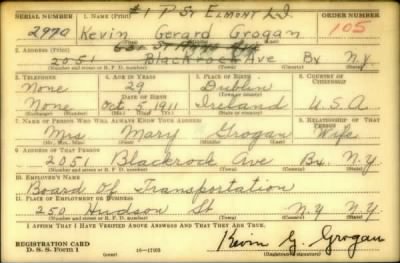 #1 P St Elmont L.I.
SERIAL NUMBER 1. NAME (Print) ORDER NUMBER
2970 Kevin Gerard Grogan 105
2. ADDRESS (Print)
2051 Blackrock Ave Bx N.Y.
(Number and street or R. F. D. number) (Town) (County) (State)
3. TELEPHONE 4. AGE IN YEARS 5. PLACE OF BIRTH 6. COUNTRY OF CITIZENSHIP
None 29 Dublin
DATE OF BIRTH
None Oct. 5, 1911 Ireland U.S.A.
7. NAME OF PERSON WHO WILL ALWAYS KNOW YOUR ADDRESS 8. RELATIONSHIP OF THAT PERSON
Mrs Mary Grogan Wife
(Mr., Mrs., Miss) (First) (Middle) (Last)
9. ADDRESS OF THAT PERSON
2051 Blackrock Ave Bx. N.Y
(Number and street or R. F. D. number) (Town) (County) (State)
10. EMPLOYER'S NAME
Board Of Transportation
11. PLACE OF EMPLOYMENT OR BUSINESS
250 Hudson St N.Y N.Y
(Number and street or R. F. D. number) (Town) (County) (State)
I AFFIRM THAT I HAVE VERIFIED ABOVE ANSWERS AND THAT THEY ARE TRUE.
REGISTRATION CARD
D. S. S. Form 1 (over) 16—17105 Kevin G. Grogan